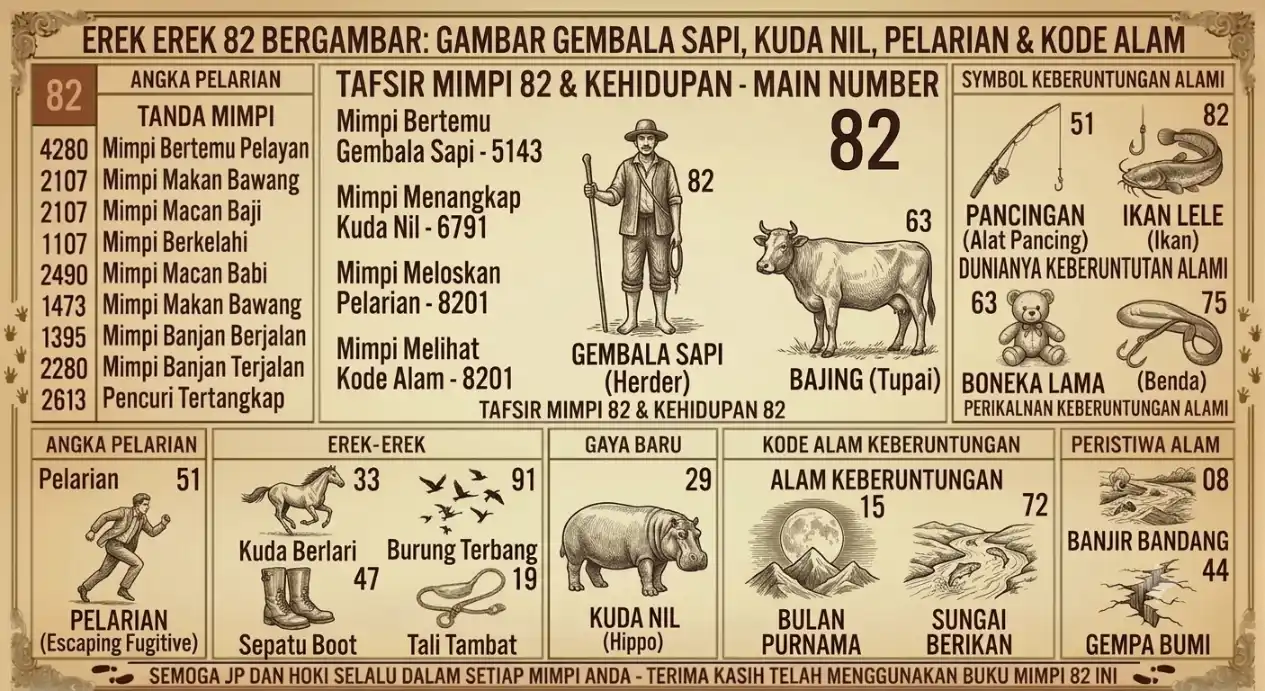 EREK EREK 82 BERGAMBAR: GAMBAR GEMBALA SAPI, KUDA NIL, PELARIAN & KODE ALAM
82
ANGKA PELARIAN
TANDA MIMPI
4280 Mimpi Bertemu Pelayan
2107 Mimpi Makan Bawang
2107 Mimpi Macan Baji
1107 Mimpi Berkelahi
2490 Mimpi Macan Babi
1473 Mimpi Makan Bawang
1395 Mimpi Banjan Berjalan
2280 Mimpi Banjan Terjalan
2613 Pencuri Tertangkap
TAFSIR MIMPI 82 & KEHIDUPAN - MAIN NUMBER
Mimpi Bertemu
Gembala Sapi - 5143
Mimpi Menangkap
Kuda Nil - 6791
Mimpi Meloskan
Pelarian - 8201
Mimpi Melihat
Kode Alam - 8201
82
GEMBALA SAPI
(Herder)
82
63
BAJING (Tupai)
TAFSIR MIMPI 82 & KEHIDUPAN 82
SYMBOL KEBERUNTUNGAN ALAMI
51
PANCINGAN
(Alat Pancing)
82
IKAN LELE
(Ikan)
DUNIANYA KEBERUNTUTAN ALAMI
63
BONEKA LAMA
75
(Benda)
PERIKALNAN KEBERUNTUNGAN ALAMI
ANGKA PELARIAN
Pelarian 51
PELARIAN
(Escaping Fugitive)
EREK-EREK
33
Kuda Berlari
91
Burung Terbang
47
Sepatu Boot
19
Tali Tambat
GAYA BARU
29
KUDA NIL
(Hippo)
KODE ALAM KEBERUNTUNGAN
ALAM KEBERUNTUNGAN
15
BULAN
PURNAMA
72
SUNGAI
BERIKAN
PERISTIWA ALAM
08
BANJIR BANDANG
44
GEMPA BUMI
SEMOGA JP DAN HOKI SELALU DALAM SETIAP MIMPI ANDA - TERIMA KASIH TELAH MENGGUNAKAN BUKU MIMPI 82 INI